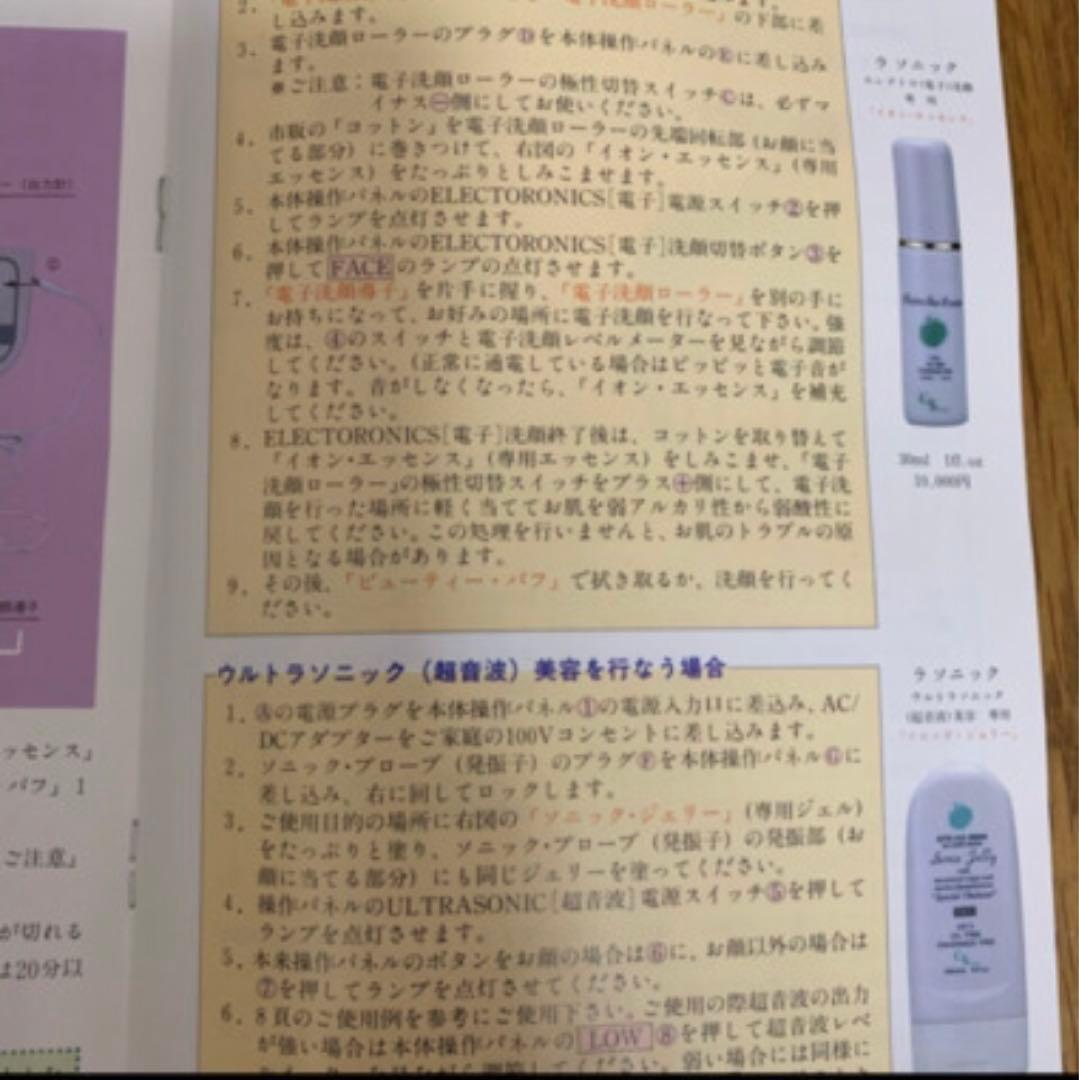 し込みます。
の下部に差
3. 電子洗顔ローラーのプラグⒹを本体操作パネルのⒺに差し込み
ます。
※ご注意：電子洗顔ローラーの極性切替スイッチⒸは、必ずマ
イナス⊖側にしてお使いください。
4. 市販の「コットン」を電子洗顔ローラーの先端回転部（お顔に当
てる部分）に巻きつけて、右図の「イオン・エッセンス」（専用
エッセンス）をたっぷりとしみこませます。
5. 本体操作パネルのELECTORONICS［電子］電源スイッチ②を押
してランプを点灯させます。
6. 本体操作パネルのELECTORONICS［電子］洗顔切替ボタン③を
押してFACEのランプの点灯させます。
7. 「電子洗顔導子」を片手に握り、「電子洗顔ローラー」を別の手に
お持ちになって、お好みの場所に電子洗顔を行なって下さい。強
度は、④のスイッチと電子洗顔レベルメーターを見ながら調節
してください。（正常に通電している場合はピッピッと電子音が
なります。音がしなくなったら、「イオン・エッセンス」を補充
してください。
8. ELECTORONICS［電子］洗顔終了後は、コットンを取り替えて
「イオン・エッセンス」（専用エッセンス）をしみこませ、「電子
洗顔ローラー」の極性切替スイッチをプラス⊕側にして、電子洗
顔を行った場所に軽く当ててお肌を弱アルカリ性から弱酸性に
戻してください。この処理を行いませんと、お肌のトラブルの原
因となる場合があります。
9. その後、「ビューティー・パフ」で拭き取るか、洗顔を行ってく
ださい。
ラソニック
専用
30ml 1fl.oz
10,000円
ウルトラソニック（超音波）美容を行なう場合
1. Ⓐの電源プラグを本体操作パネル①の電源入力口に差込み、AC/
DCアダプターをご家庭の100Vコンセントに差し込みます。
2. ソニック・プローブ（発振子）のプラグⒻを本体操作パネルⒼに
差し込み、右に回してロックします。
3. ご使用目的の場所に右図の「ソニック・ジェリー」（専用ジェル）
をたっぷりと塗り、ソニック・プローブ（発振子）の発振部（お
顔に当てる部分）にも同じジェリーを塗ってください。
4. 操作パネルのULTRASONIC［超音波］電源スイッチ⑤を押して
ランプを点灯させます。
5. 本来操作パネルのボタンをお顔の場合は⑥に、お顔以外の場合は
⑦を押してランプを点灯させてください。
6. 8頁のご使用例を参考にご使用下さい。ご使用の際超音波の出力
が強い場合は本体操作パネルのLOW⑧を押して超音波レベ
弱い場合には同様に
ラソニック
ウルトラソニック
(超音波)美容 専用
「ソニック・ジェリー」
Sonic Jelly
ッセンス」
パフ」1
ご注意」
が切れる
は20分以